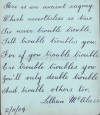 Here is an ancient saying
Which nevertheless is true
So never trouble trouble
Till trouble troubles you
For if you trouble trouble
So trouble troubles you
You'll only double trouble
And trouble others too.
Lillian